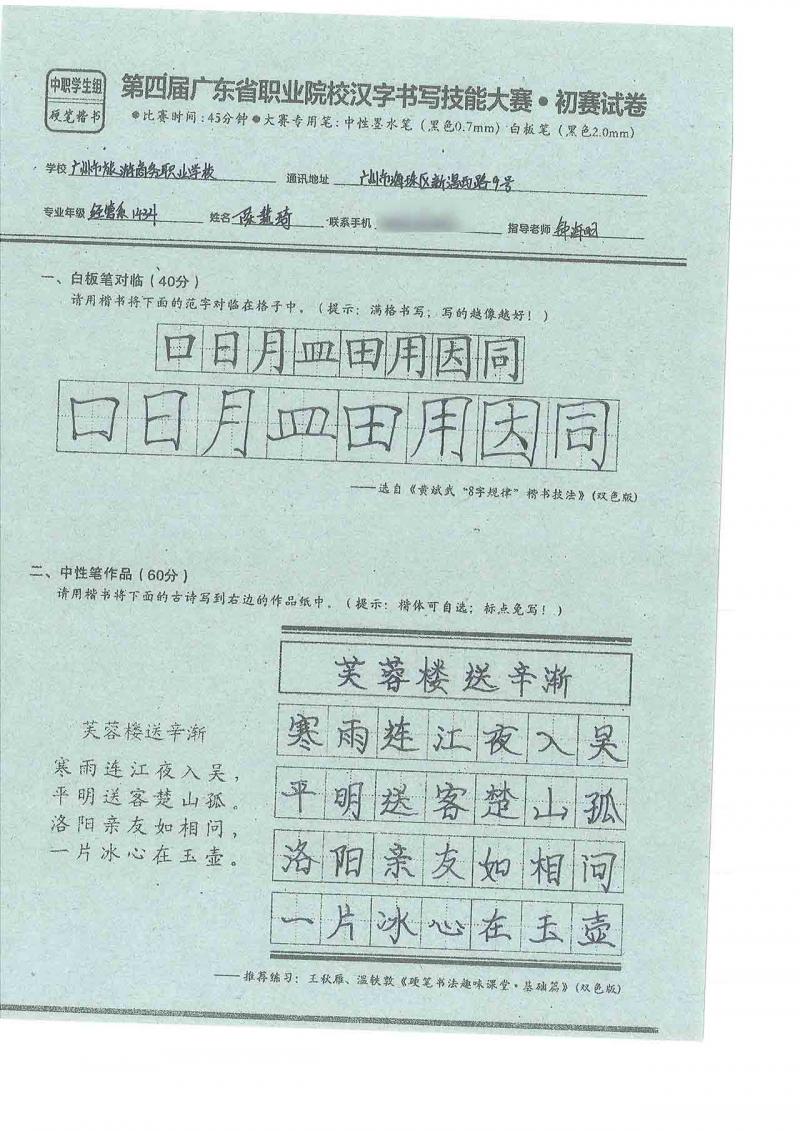 中职学生组
硬笔楷书
第四届广东省职业院校汉字书写技能大赛•初赛试卷
●比赛时间:45分钟●大赛专用笔:中性墨水笔（黑色0.7mm）白板笔（黑色2.0mm）
学校 广州市旅游商务职业学校 通讯地址 广州市海珠区新滘西路9号
专业年级 经管系1434 姓名 陈慧琦 联系手机 指导老师
一、白板笔对临（40分）
请用楷书将下面的范字对临在格子中。（提示：满格书写；写的越像越好！）
口日月皿田用因同
口日月皿田用因同
——选自《黄斌武“8字规律”楷书技法》(双色版)
二、中性笔作品（60分）
请用楷书将下面的古诗写到右边的作品纸中。（提示：楷体可自选；标点免写！）
芙蓉楼送辛渐
寒雨连江夜入吴，
平明送客楚山孤。
洛阳亲友如相问，
一片冰心在玉壶。
芙蓉楼送辛渐
寒雨连江夜入吴
平明送客楚山孤
洛阳亲友如相问
一片冰心在玉壶
——推荐练习：王秋雁、温轶敦《硬笔书法趣味课堂·基础篇》(双色版)